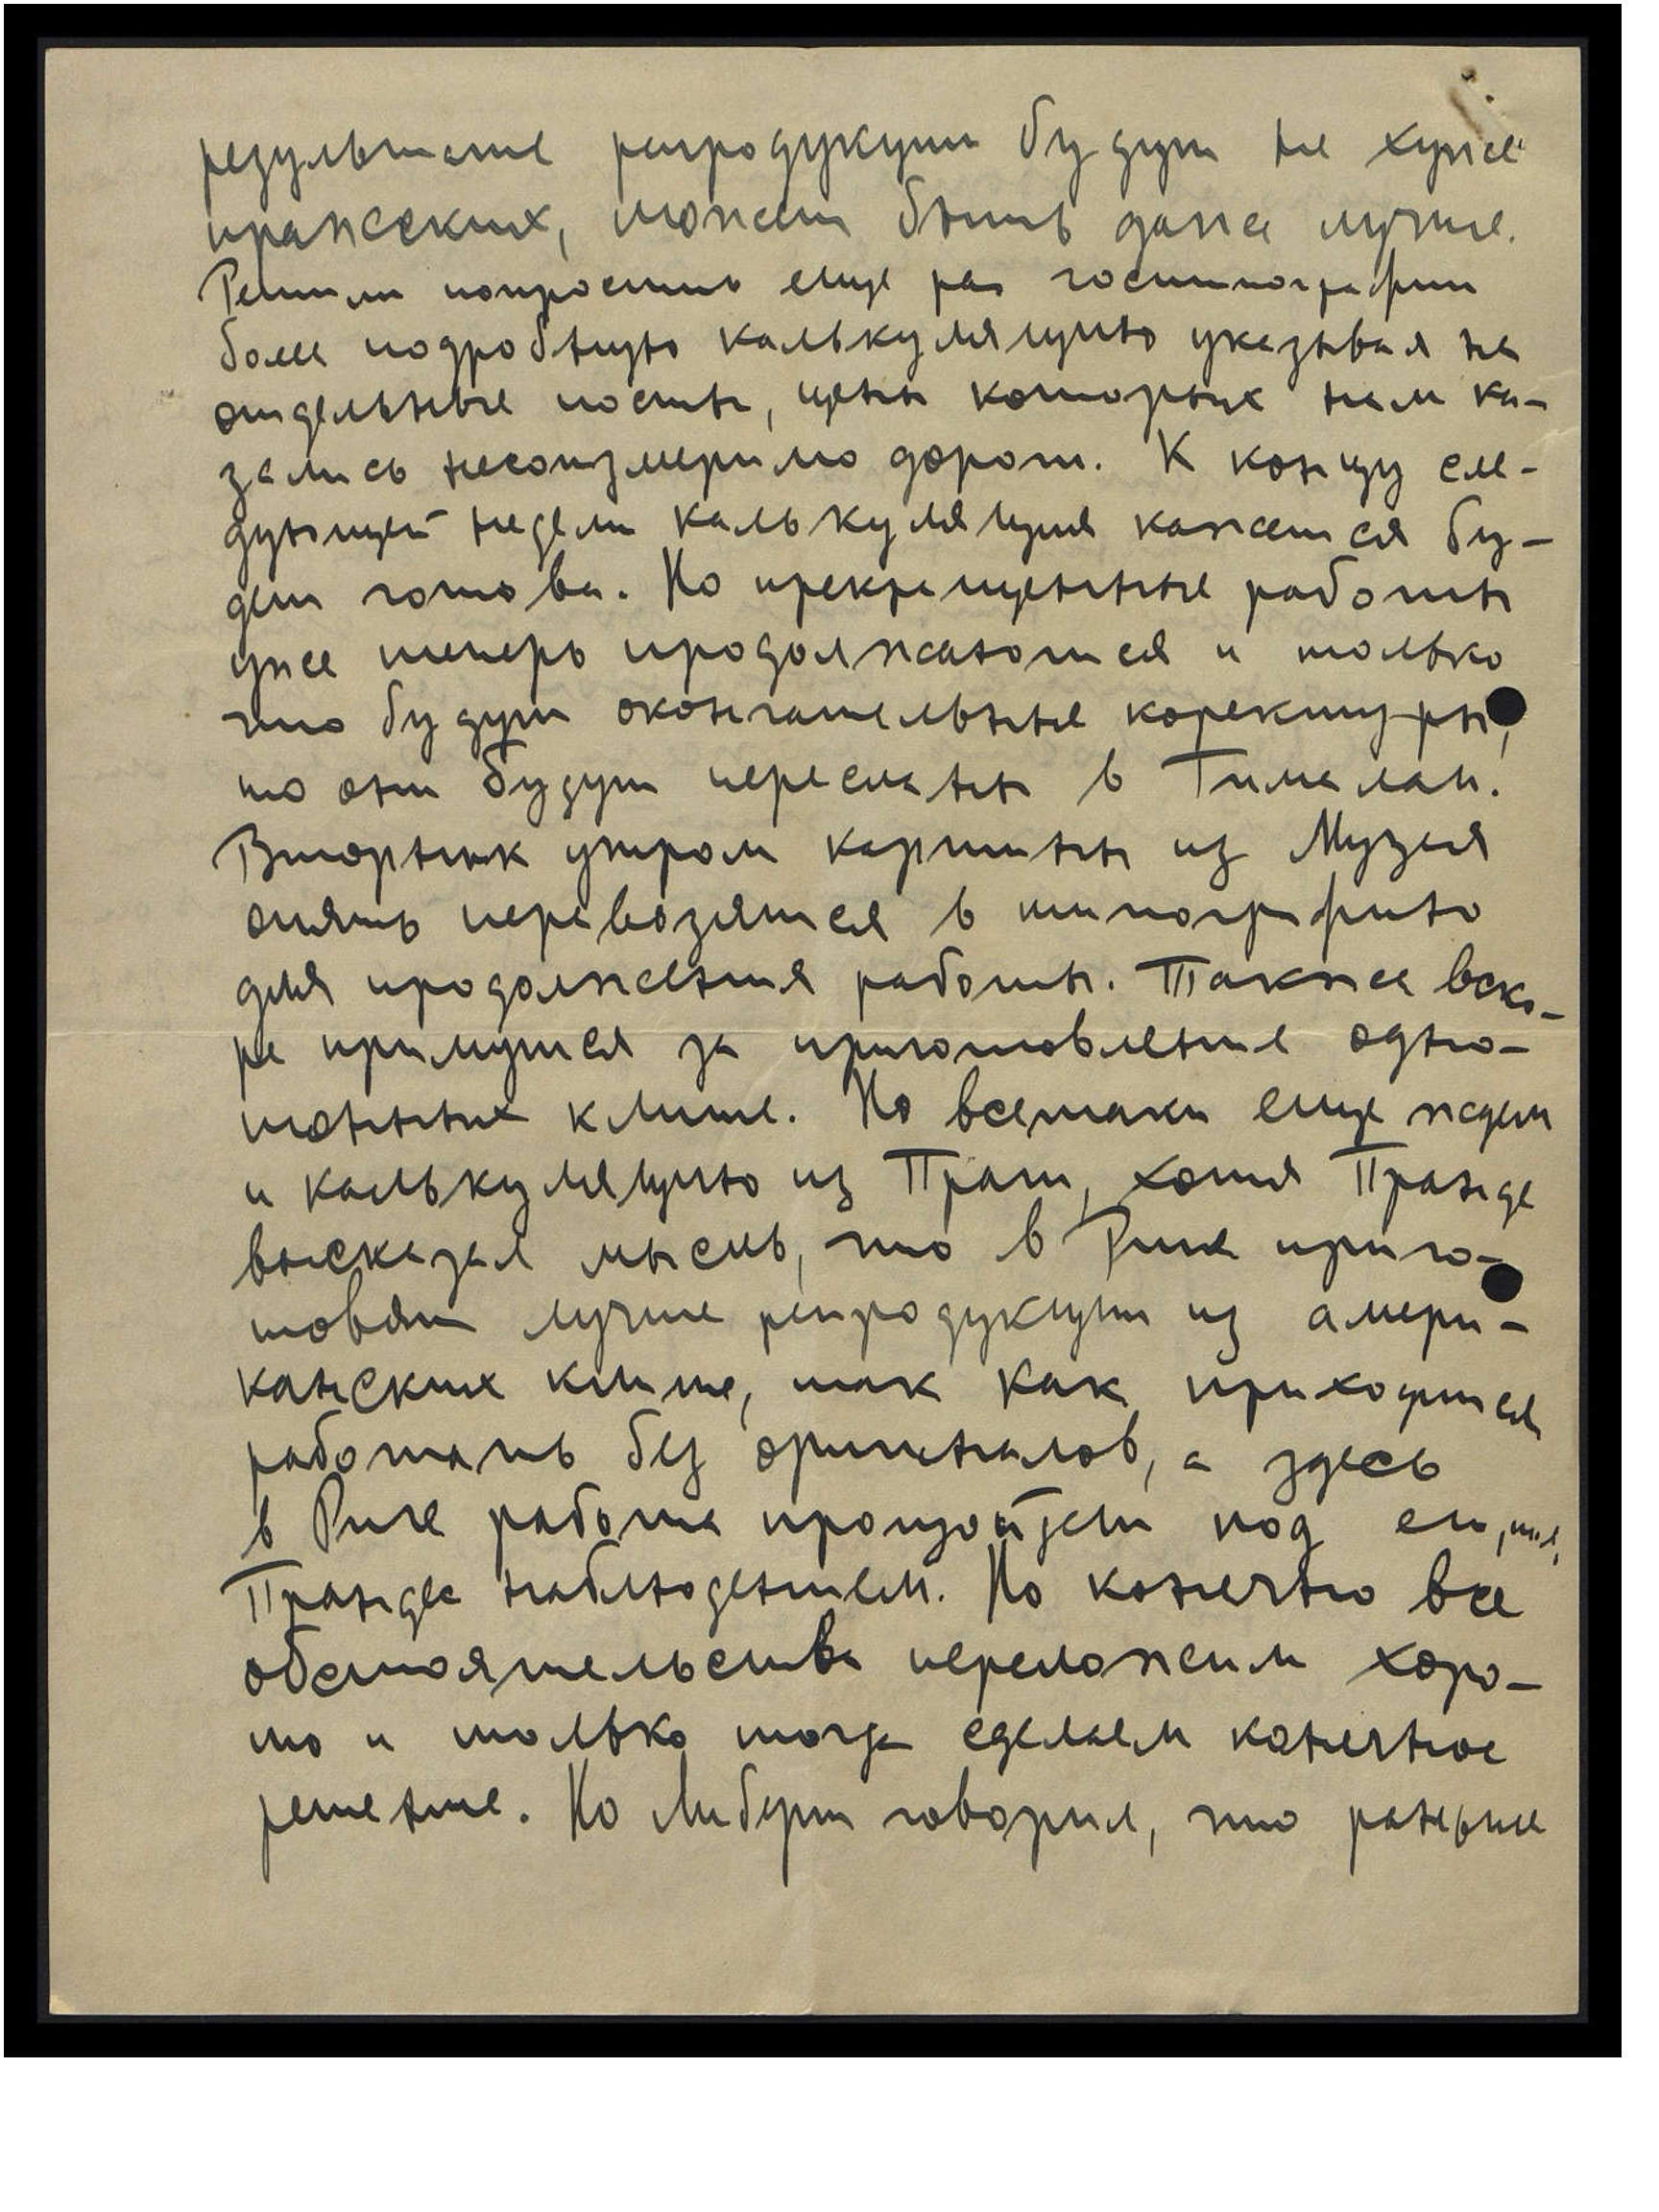 результате репродукции будут не хуже
пражских, может быть даже лучше.
Решили попросить еще раз гостипографии
более подробную калькуляцию указывая на
отдельные посты, цены которых нам ка-
зались несоизмеримо дороги. К концу сле-
дующей недели калькуляция кажется бу-
дет готова. Но прекращенные работы
уже теперь продолжаются и только
что будут окончательные коректуры,
то они будут пересланы в Гималаи.
Вторник утром картины из Музея
опять перевозятся в типографию
для продолжения работы. Также вско-
ре примутся за приготовление одно-
тонных клише. Но всетаки еще ждем
и калькуляцию из Праги, хотя Пранде
высказал мысль, что в Риге приго-
товят лучше репродукции из амери-
канских клише, так как приходится
работать без оригиналов, а здесь
в Риге работа произойдет под его,
Пранде наблюдением. Но конечно все
обстоятельства переложим хоро-
шо и только тогда сделаем конечное
решение. Но Либерт говорил, что раньше